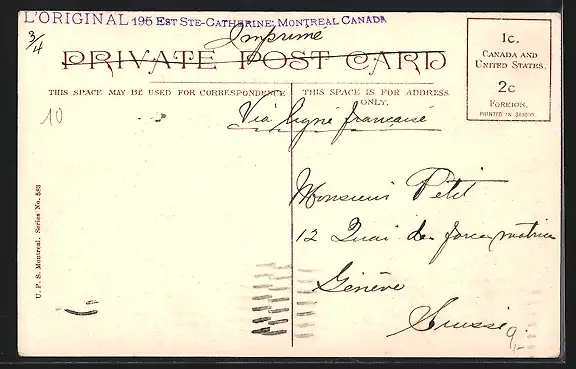 L'ORIGINAL 195 EST STE-CATHERINE; MONTREAL CANADA
3/4
Imprimé
PRIVATE POST CARD
1c.
CANADA AND
UNITED STATES.
2c
FOREIGN.
PRINTED IN SAXONY
THIS SPACE MAY BE USED FOR CORRESPONDENCE
THIS SPACE IS FOR ADDRESS
ONLY.
10
Via ligne française
Monsieur Petit
12 Quai des forces motrices
Genève
Suisse
9,-
U. P. S. Montreal. Series No. 583